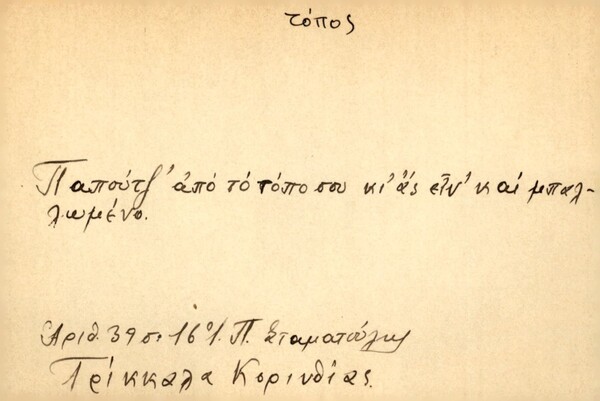 τόπος
Παπούτσ' ἀπό τό τόπο σου κι' ἄς εἶν' καί μπαλ-
λωμένο.
Ἀριθ. 39 σ. 161. Π. Σταματούλης
Τρίκκαλα Κορινθίας.